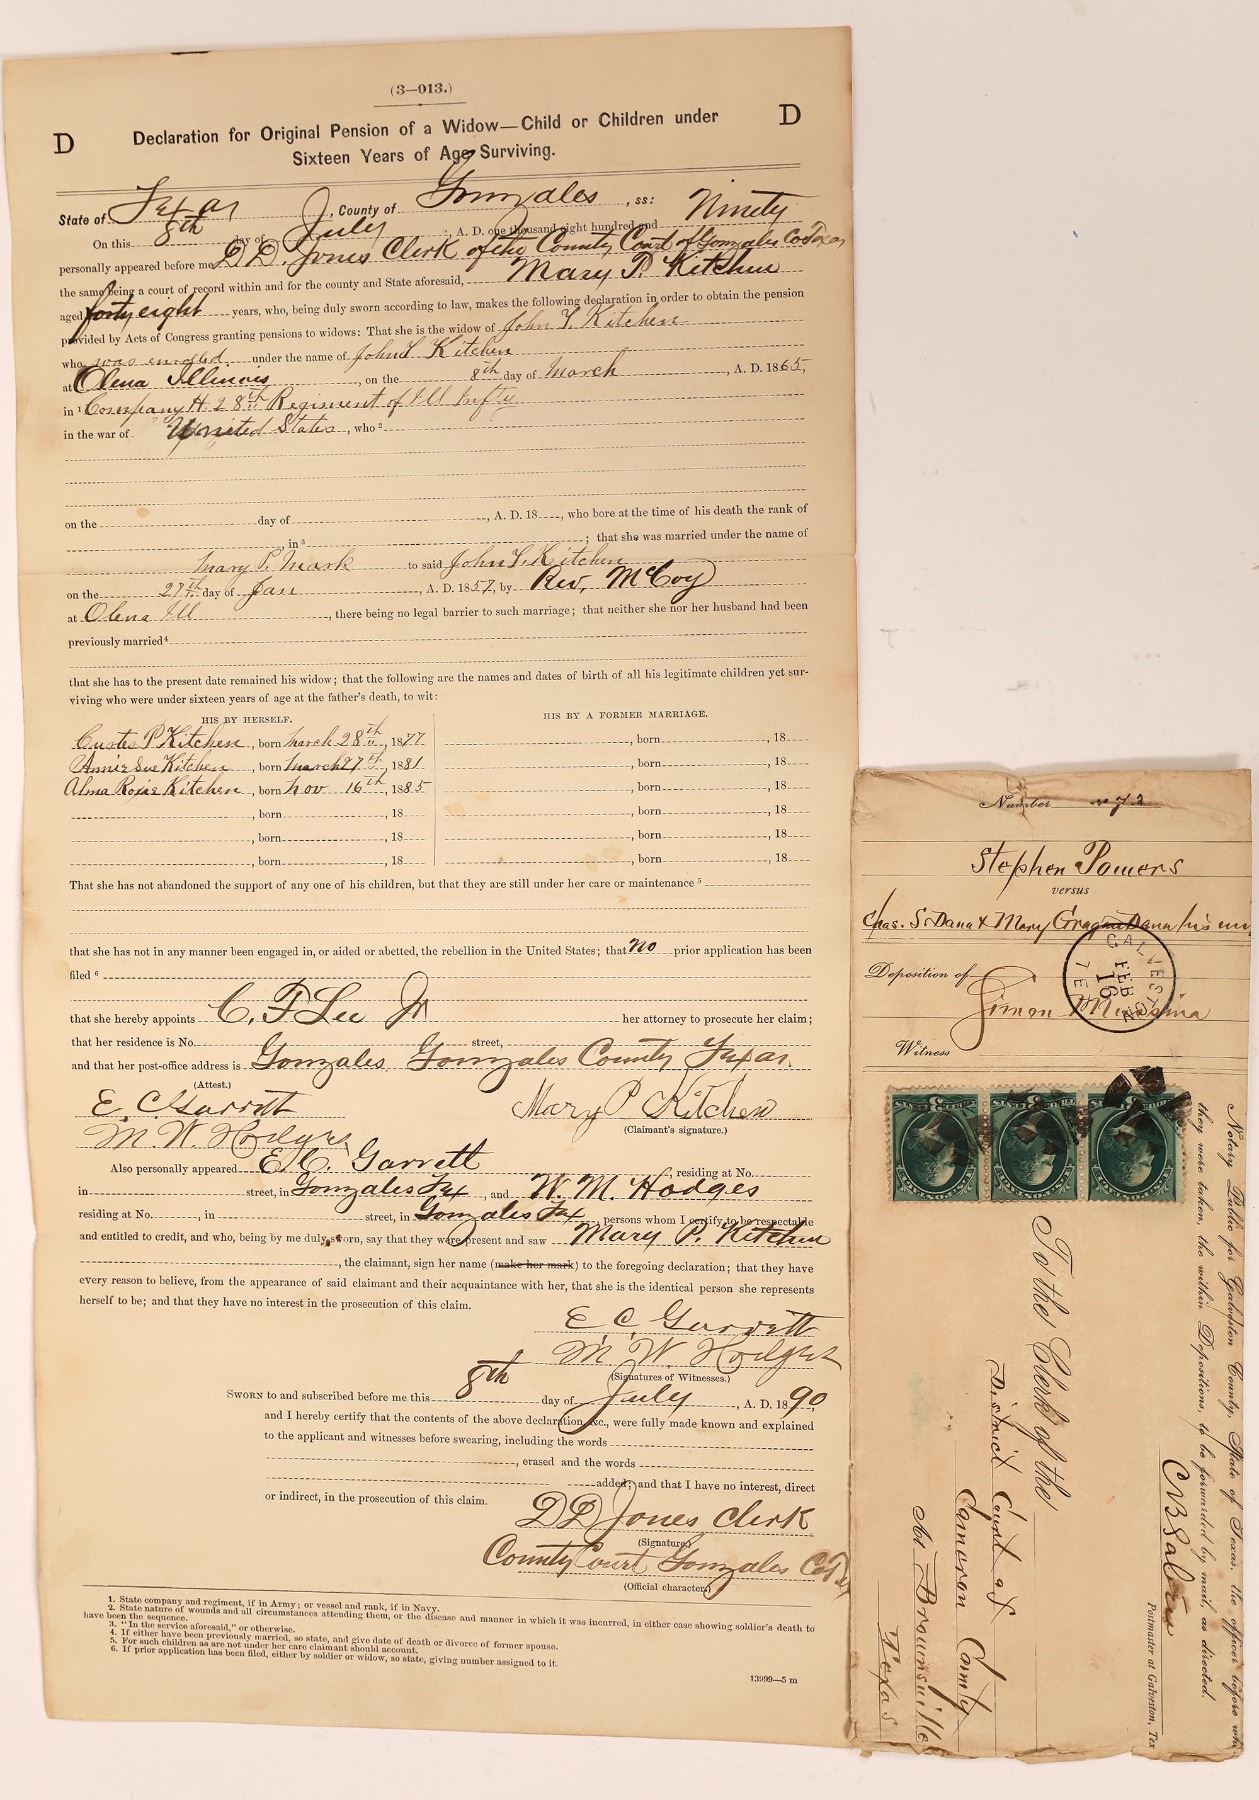 (3—013.)
D
Declaration for Original Pension of a Widow—Child or Children under
D
Sixteen Years of Age Surviving.
State of Texas, County of Gonzales, ss:
On this 8th day of July, A. D. one thousand eight hundred and Ninety
personally appeared before me D D. Jones Clerk of the County Court of Gonzales Co Texas
the same being a court of record within and for the county and State aforesaid, Mary P. Kitchen
aged forty eight years, who, being duly sworn according to law, makes the following declaration in order to obtain the pension
provided by Acts of Congress granting pensions to widows: That she is the widow of John T. Kitchen
who was enrolled under the name of John T Kitchen
at Olena Illinois, on the 8th day of March, A. D. 1865,
in 1 Company H. 28th Regiment of Ill Infty
in the war of United States, who 2
on the day of , A. D. 18 , who bore at the time of his death the rank of
, in 3 ; that she was married under the name of
Mary P. Mark to said John T. Kitchen
on the 27th day of Jan, A. D. 1857, by Rev. McCoy
at Olena Ill, there being no legal barrier to such marriage; that neither she nor her husband had been
previously married 4
that she has to the present date remained his widow; that the following are the names and dates of birth of all his legitimate children yet sur-
viving who were under sixteen years of age at the father's death, to wit:
HIS BY HERSELF.
HIS BY A FORMER MARRIAGE.
Curtes P Kitchen, born March 28th, 1877
, born , 18
Annie Sue Kitchen, born March 27th, 1881
, born , 18
Alma Roxie Kitchen, born Nov 16th, 1885
, born , 18
, born , 18
, born , 18
, born , 18
, born , 18
, born , 18
, born , 18
That she has not abandoned the support of any one of his children, but that they are still under her care or maintenance 5
that she has not in any manner been engaged in, or aided or abetted, the rebellion in the United States; that no prior application has been
filed 6
that she hereby appoints C. F Lee Jr her attorney to prosecute her claim;
that her residence is No. street,
and that her post-office address is Gonzales, Gonzales County Texas.
(Attest.)
E. C Garrett
Mary P Kitchen
M. W. Hodges
(Claimant's signature.)
Also personally appeared E. C. Garrett residing at No.
in street, in Gonzales Tex, and W. M. Hodges
residing at No. , in street, in Gonzales Tex persons whom I certify to be respectable
and entitled to credit, and who, being by me duly sworn, say that they were present and saw Mary P. Kitchen
, the claimant, sign her name (make her mark) to the foregoing declaration; that they have
every reason to believe, from the appearance of said claimant and their acquaintance with her, that she is the identical person she represents
herself to be; and that they have no interest in the prosecution of this claim.
E C Garrett
M. W. Hodges
(Signatures of Witnesses.)
SWORN to and subscribed before me this 8th day of July, A. D. 1890,
and I hereby certify that the contents of the above declaration, &c., were fully made known and explained
to the applicant and witnesses before swearing, including the words
, erased and the words
added; and that I have no interest, direct
or indirect, in the prosecution of this claim.
D D Jones Clerk
(Signature.)
County Court Gonzales Co Tex
(Official character.)
1. State company and regiment, if in Army; or vessel and rank, if in Navy.
2. State nature of wounds and all circumstances attending them, or the disease and manner in which it was incurred, in either case showing soldier's death to
have been the sequence.
3. "In the service aforesaid," or otherwise.
4. If either have been previously married, so state, and give date of death or divorce of former spouse.
5. For such children as are not under her care claimant should account.
6. If prior application has been filed, either by soldier or widow, so state, giving number assigned to it.
13999—5 m
Number
Stephen Powers
versus
Chas. S. Dana & Mary Dana his
Deposition of
Simon Mussina
Witness
GALVESTON
FEB
16
TEX
To the Clerk of the
District Court of
Cameron County
At Brownsville
Texas
Notary Public for Galveston County, State of Texas, the officer before
they were taken, the within Depositions, to be forwarded by mail, as directed.
Postmaster at Galveston, Tex